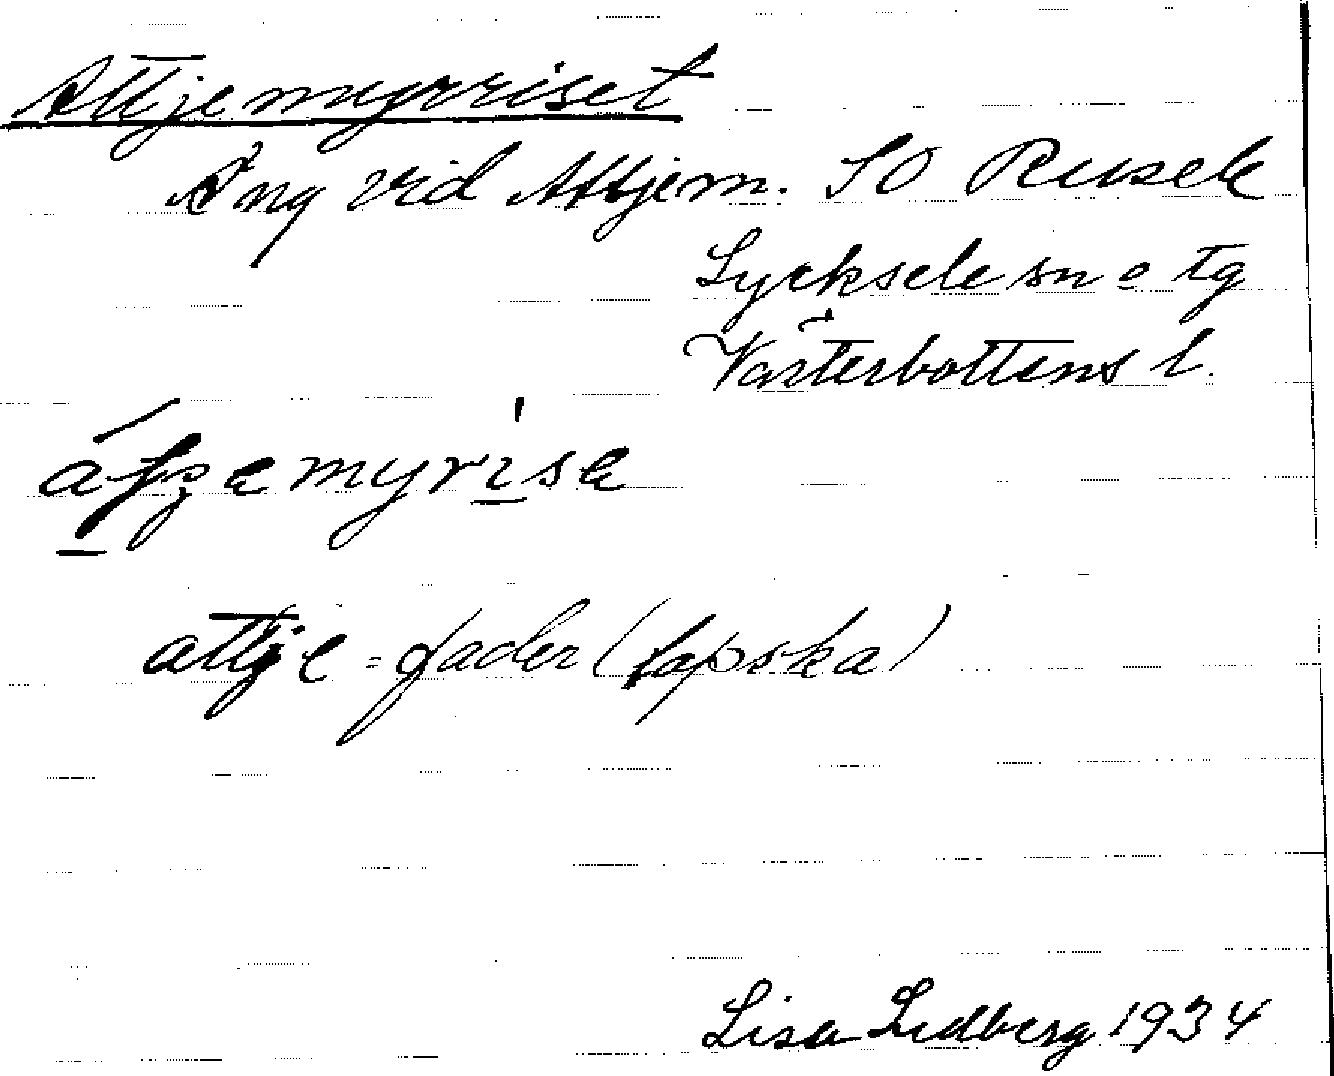 Attjemyrriset
Äng vid Attjem. SO Rusele
Lycksele sn o tg
Västerbottens l.
attje = fader (lapska)
Lisa Lidberg 1934